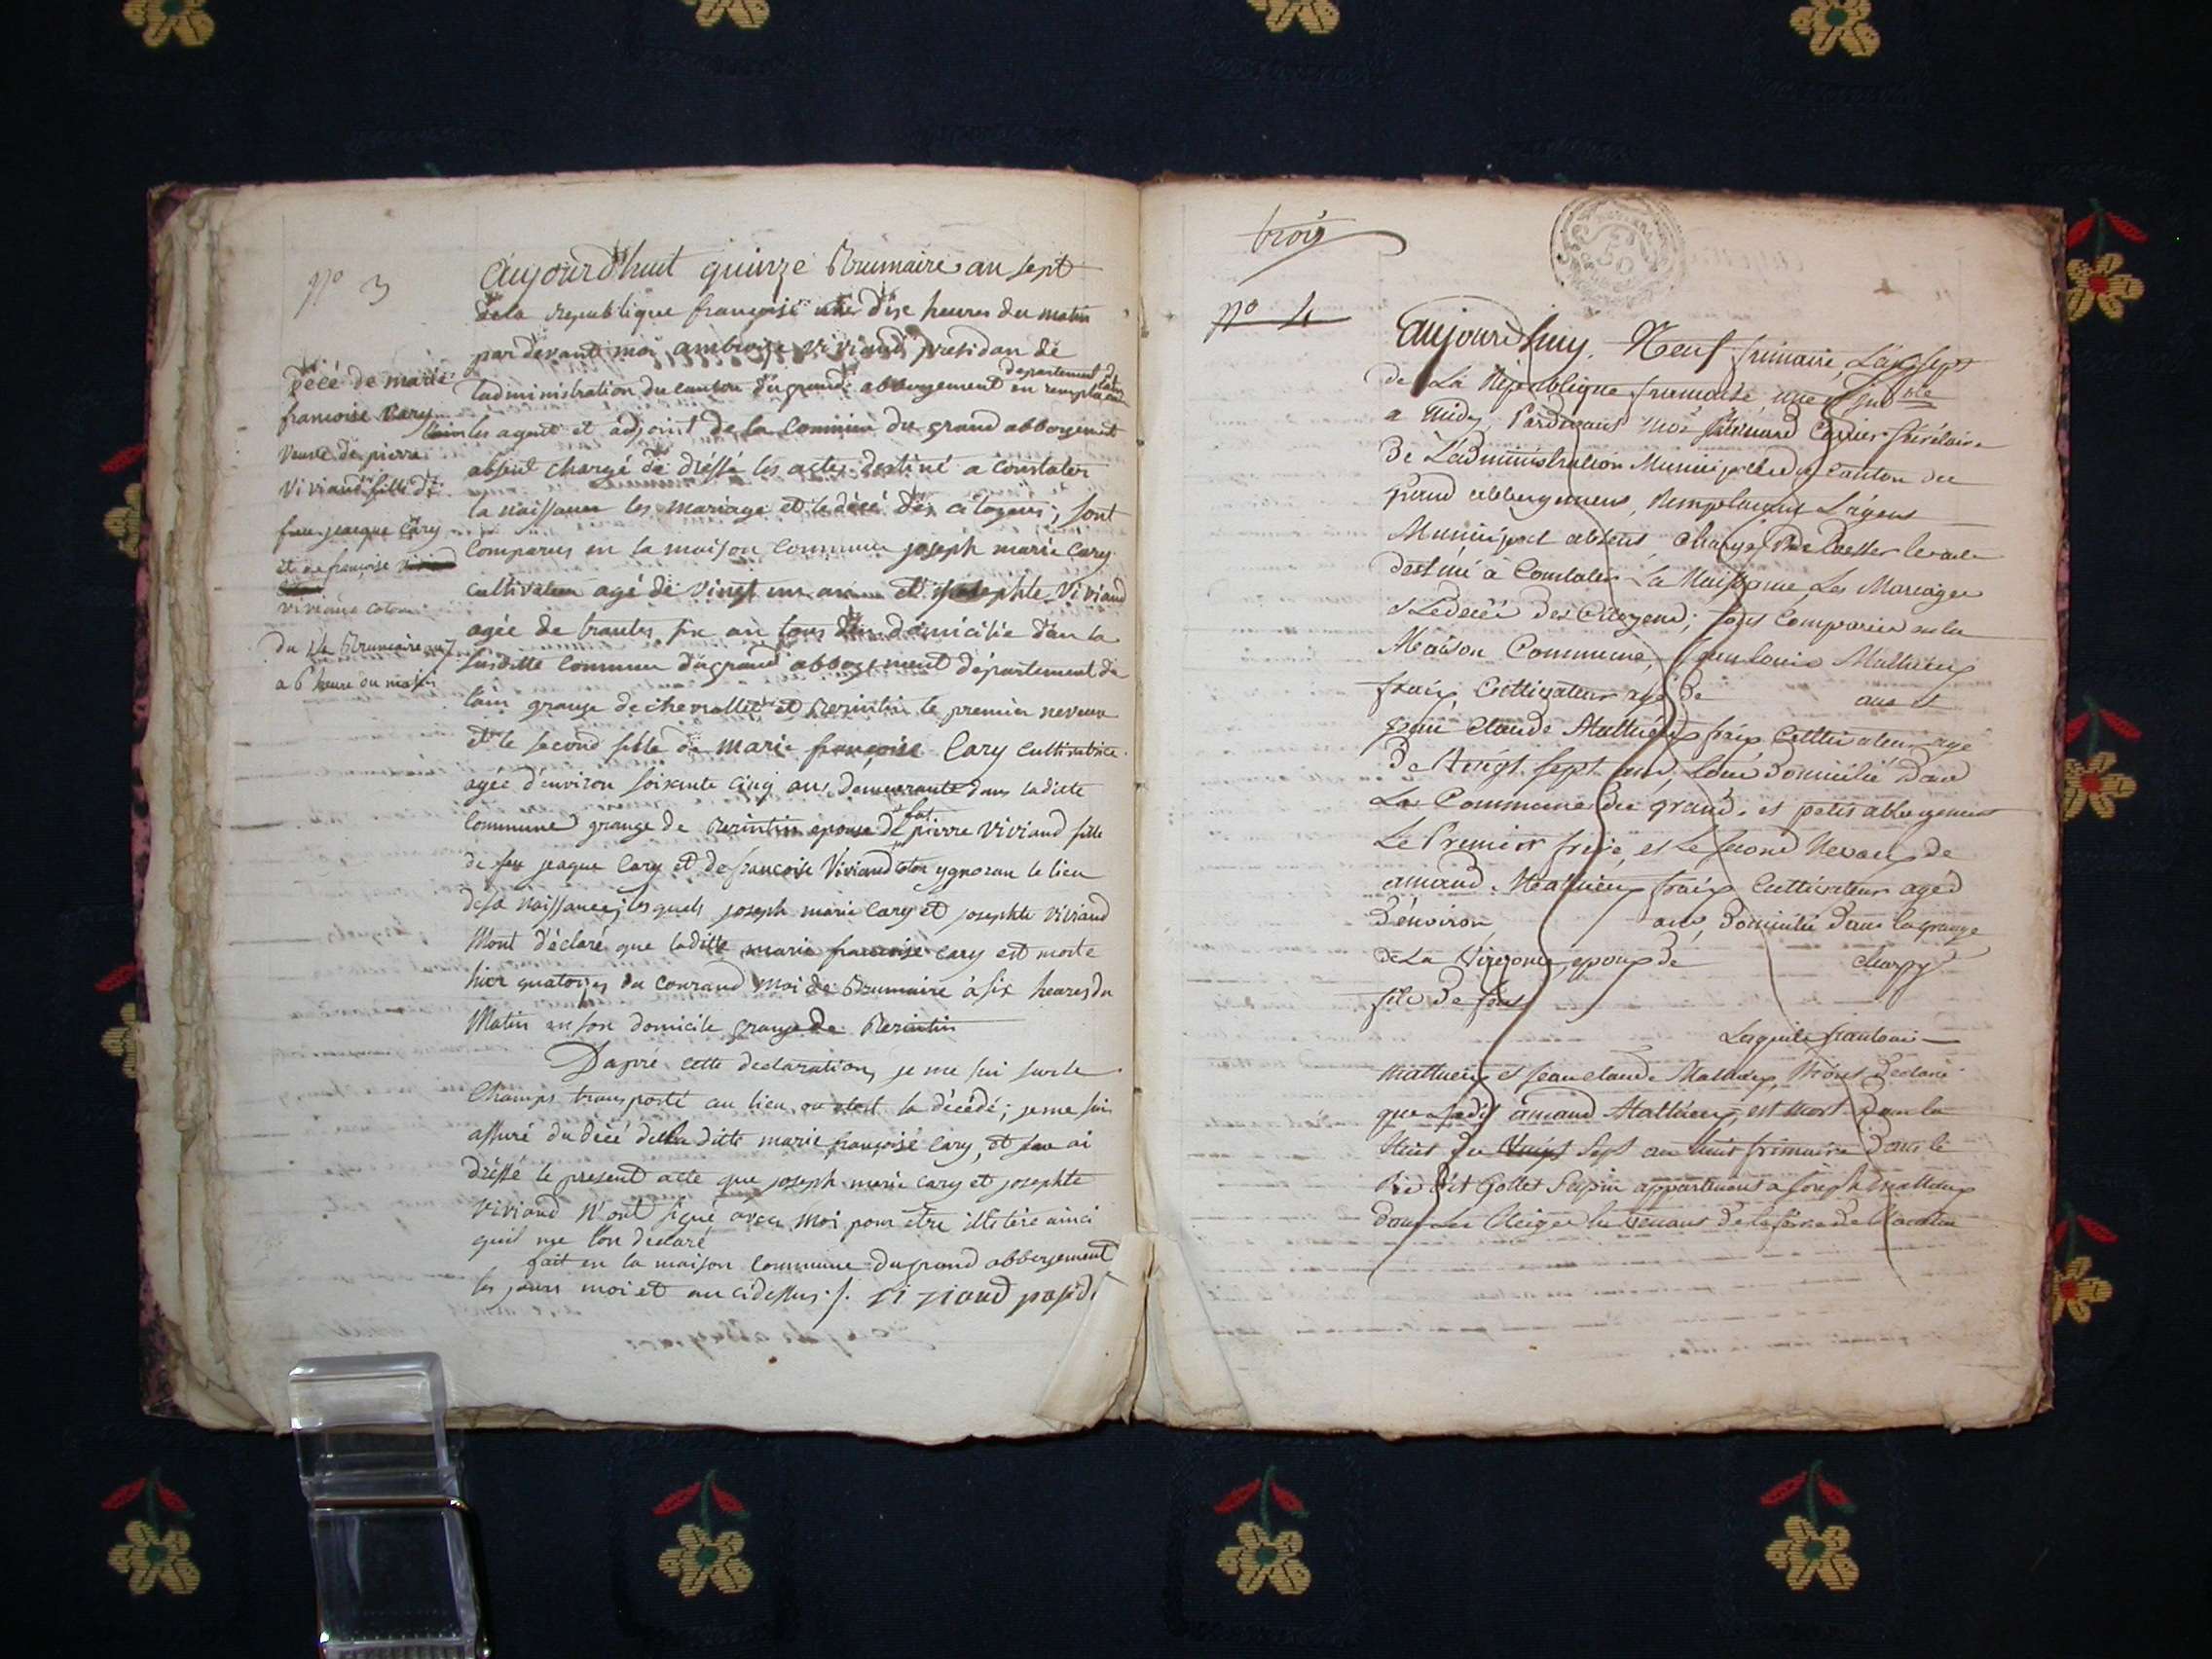 N° 3
décé de marie
francoise Cary
veuve de pierre
Viviand fille de
feu jeaque Cary
et de françoise
viviand coton
du 14 Brumaire an 7
a 6 heure du matin
aujourd'huit quinze Brumaire an sept
de la republique françoise dix heures du matin
par devant moi ambroise viviand presidan de
departement de
ladministration du canton du grand abbergement en
les agent et adjoint de la commune du grand abbergement
absent chargé de dréssé les actes destiné a constater
la naissance les mariage et le décé des citoyens, sont
comparus en la maison commune joseph marie Cary
cultivateur agé de vingt un an et josephte Viviand
agée de trantes six an tous deu domicilié dan la
susditte commune du grand abbergement département de
lain grange de chevrollet et Rerintin le premier neveux
et le second fille de marie françoise Cary cultivatrice
agée d'environ soixente cinq ans demeurante dans laditte
commune grange de Rerintin epouse de fut pierre viviand fille
de feu jeaque Cary et de francoise Viviand coton ygnoran le lieu
de sa naissance; lesquels joseph marie Cary et josephte viviand
Mont déclaré que laditte marie francoise Cary est morte
hier quatorzes du courand moi de Brumaire à six heures du
Matin en son domicile grange de Rerintin
Dapré cette declaration, je me sui sur le
Champs transporté au lieu ou est la décédé; je me sui
assuré du décé de la ditte marie françoise Cary, et en ai
dréssé le present acte que joseph marie Cary et josephte
Viviand n'ont signé avec moi pour être illitére ainci
quil me lon declaré
fait en la maison commune du grand abbergement
les jours moi et an cidessus
viviand presidt
trois
N° 4
aujourdhuy Neuf frimaire, L'an sept
de La République francaise une et indble
a midy, Pardevant moi Cavier secrétaire
de L'administration Municipalle du Canton du
grand abbergement, Remplaçant L'agent
Municipal absent Chargé de Dresser le acte
destiné à Constater La Naissance, Les Mariages
et Le décéé des Citoyens; sont Comparus en la
Maison Commune, Jean louis Mathieu
fraix Cultivateur agé de ans et
jean Claude Mathieu fraix Cultivateur agé
de Vingt sept ans, tous Domicilié Dans
La Commune du grand et petit abbergement
Le Premier frère, et Le second Neveux de
amand Mathieu fraix Cultivateur agéd
D'environ ans, Domicilié Dans la grange
de La epoux de charpy
fils de
Lesquels jeanlouis
mathieu et jean claude Mathieu, M'ont Déclaré
que Ledit amand Mathieu, est mort Dans la
Nuit du sept au huit frimaire Dans le
dit Gollet Sapin appartenant a joseph mathieu
dans Les Neiges en venant de la foire de